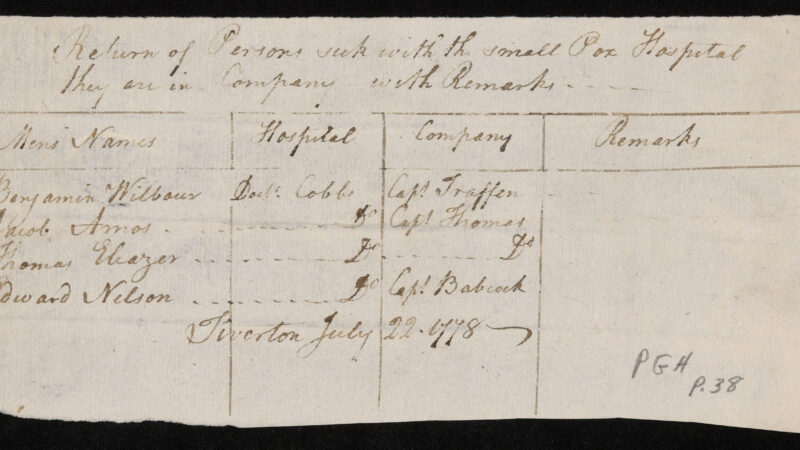 Return of Persons sick with the small Pox Hospital
they are in Company with Remarks
Mens Names Hospital Company Remarks
Benjamin Wilbour Doct. Cobbs Capt. Traffen
Jacob Amos Do Capt. Thomas
Thomas Eleazer Do Do
Edward Nelson Do Capt. Babcock
Tiverton July 22. 1778
PGH
P.38